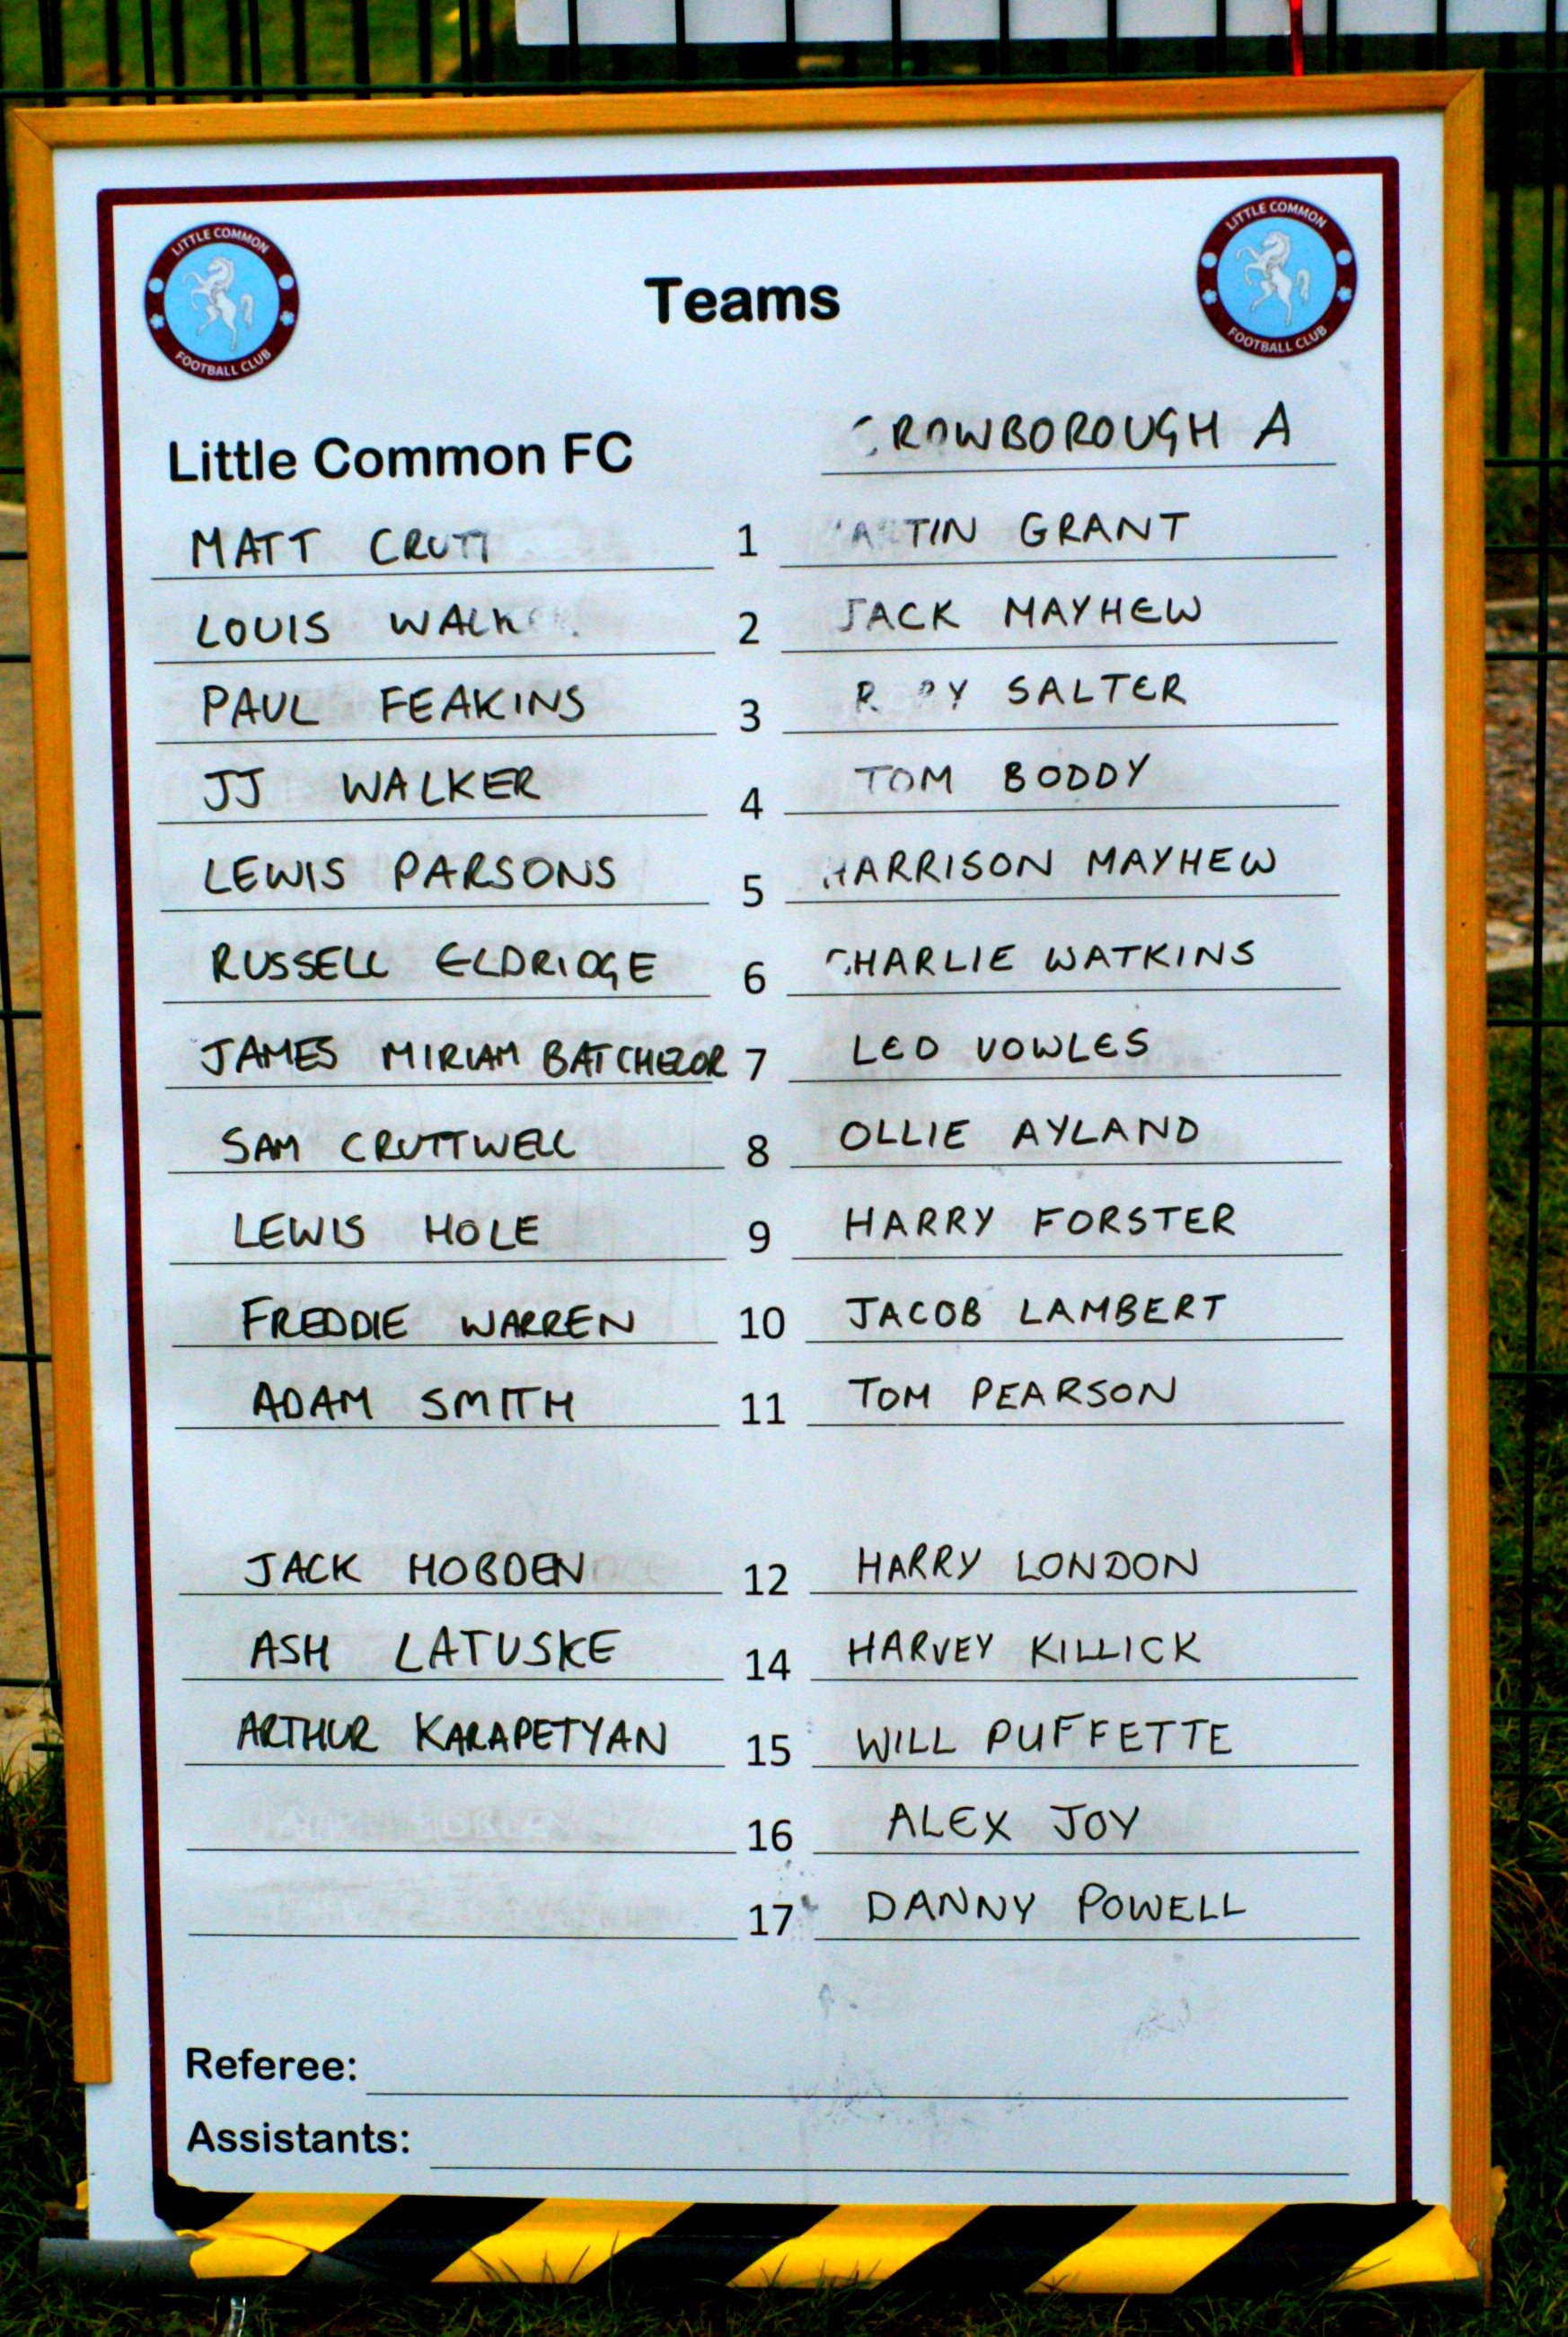 LITTLE COMMON FOOTBALL CLUB
LITTLE COMMON FOOTBALL CLUB
Teams
Little Common FC CROWBOROUGH A
MATT 1 MARTIN GRANT
LOUIS WALKER 2 JACK MAYHEW
PAUL FEAKINS 3 SALTER
JJ WALKER 4 TOM BODDY
LEWIS PARSONS 5 HARRISON MAYHEW
RUSSELL ELDRIDGE 6 CHARLIE WATKINS
JAMES MIRIAM BATCHELOR 7 LEO VOWLES
SAM CRUTTWELL 8 OLLIE AYLAND
LEWIS HOLE 9 HARRY FORSTER
FREDDIE WARREN 10 JACOB LAMBERT
ADAM SMITH 11 TOM PEARSON
JACK HOBDEN 12 HARRY LONDON
ASH LATUSKE 14 HARVEY KILLICK
ARTHUR KARAPETYAN 15 WILL PUFFETTE
16 ALEX JOY
17 DANNY POWELL
Referee:
Assistants: